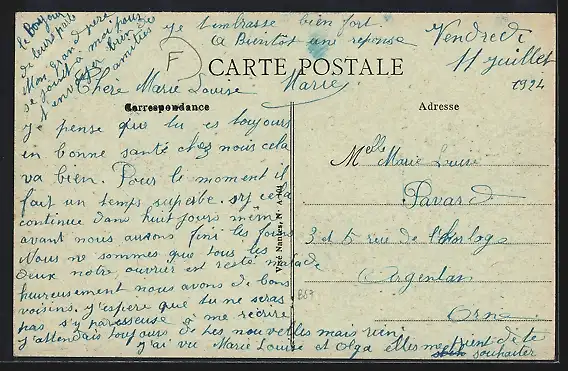 le Bonjour
de leurs part
Mon grand père
se joint a moi pour
t'envoyer bien de
amitiés
je t'embrasse bien fort
A Bientôt une reponse
Marie
Vendredi
11 juillet
1924
F
CARTE POSTALE
Correspondance
Adresse
Chère Marie Louise
je pense que tu es toujours
en bonne santé chez nous cela
va bien. Pour le moment il
fait un temps superbe. si cela
continue dans huit jours même
avant nous aurons fini les foins
Nous ne sommes que tous les
deux notre ouvrier est resté malade
heureusement nous avons de bons
voisins. j'espère que tu ne seras
pas si paresseuse a me recrire
j'attendais toujours de tes nouvelles mais rien.
j'ai vu Marie Louise et Olga elles me disent de te
souhaiter
Melle Marie Louise
Pavard
3 et 5 rue de l'Horloge
Argentan
Orne
Vizé Nantes, N° A
857